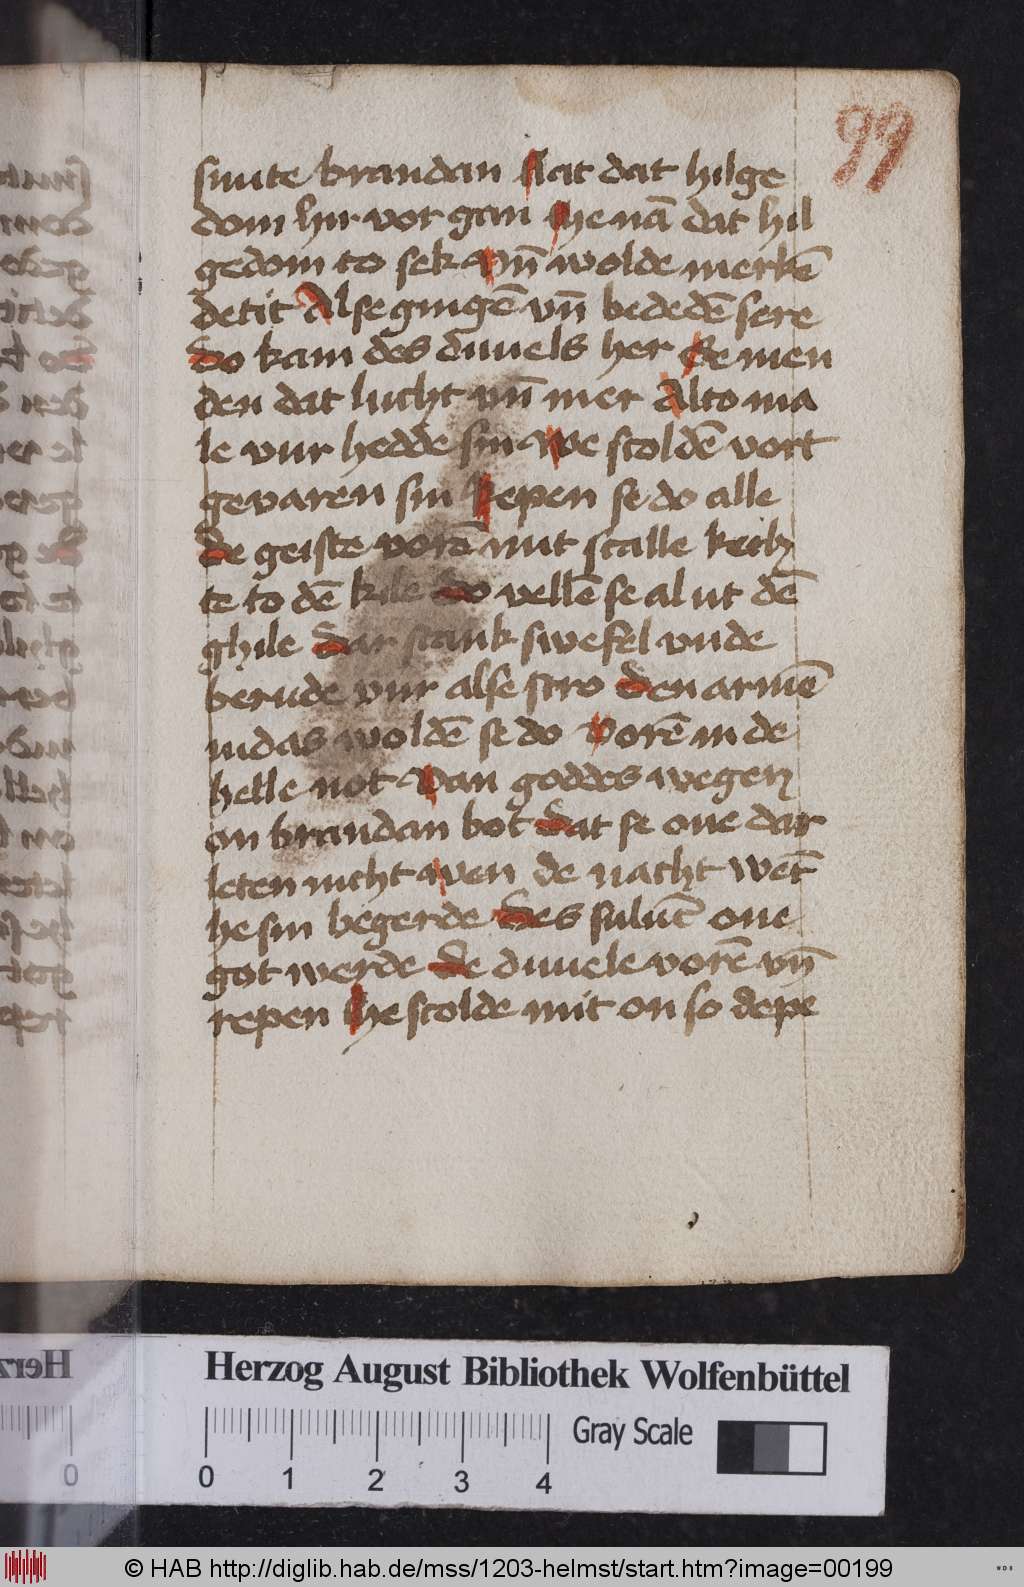 99
sinte brandan Lat dat hilge
dom hir vor gan He nā dat hil
gedom to sek vn̄ wolde merkē
detit Alse gingē vn̄ bededē sere
do kam des duuels her Se men
den dat lucht vn̄ mer Alto ma
le vur hedde sin We scoldē vort
gevaren sin Repen se do alle
de geiste vorē mit scalle
te to dē kile do vellē se al ut dē
ghile dar stank swefel vnde
bernde vur alse stro den armē
iudas woldē se do Vorē in de
helle not Van goddes wegen
on brandan bot dat se one dar
leten nicht Aven de nacht wēt
he sin begerde des suluē one
got werde de duuele vorē vn̄
repen He scolde mit on so depe
Herzog August Bibliothek Wolfenbüttel
Gray Scale
0 1 2 3 4
© HAB http://diglib.hab.de/mss/1203-helmst/start.htm?image=00199